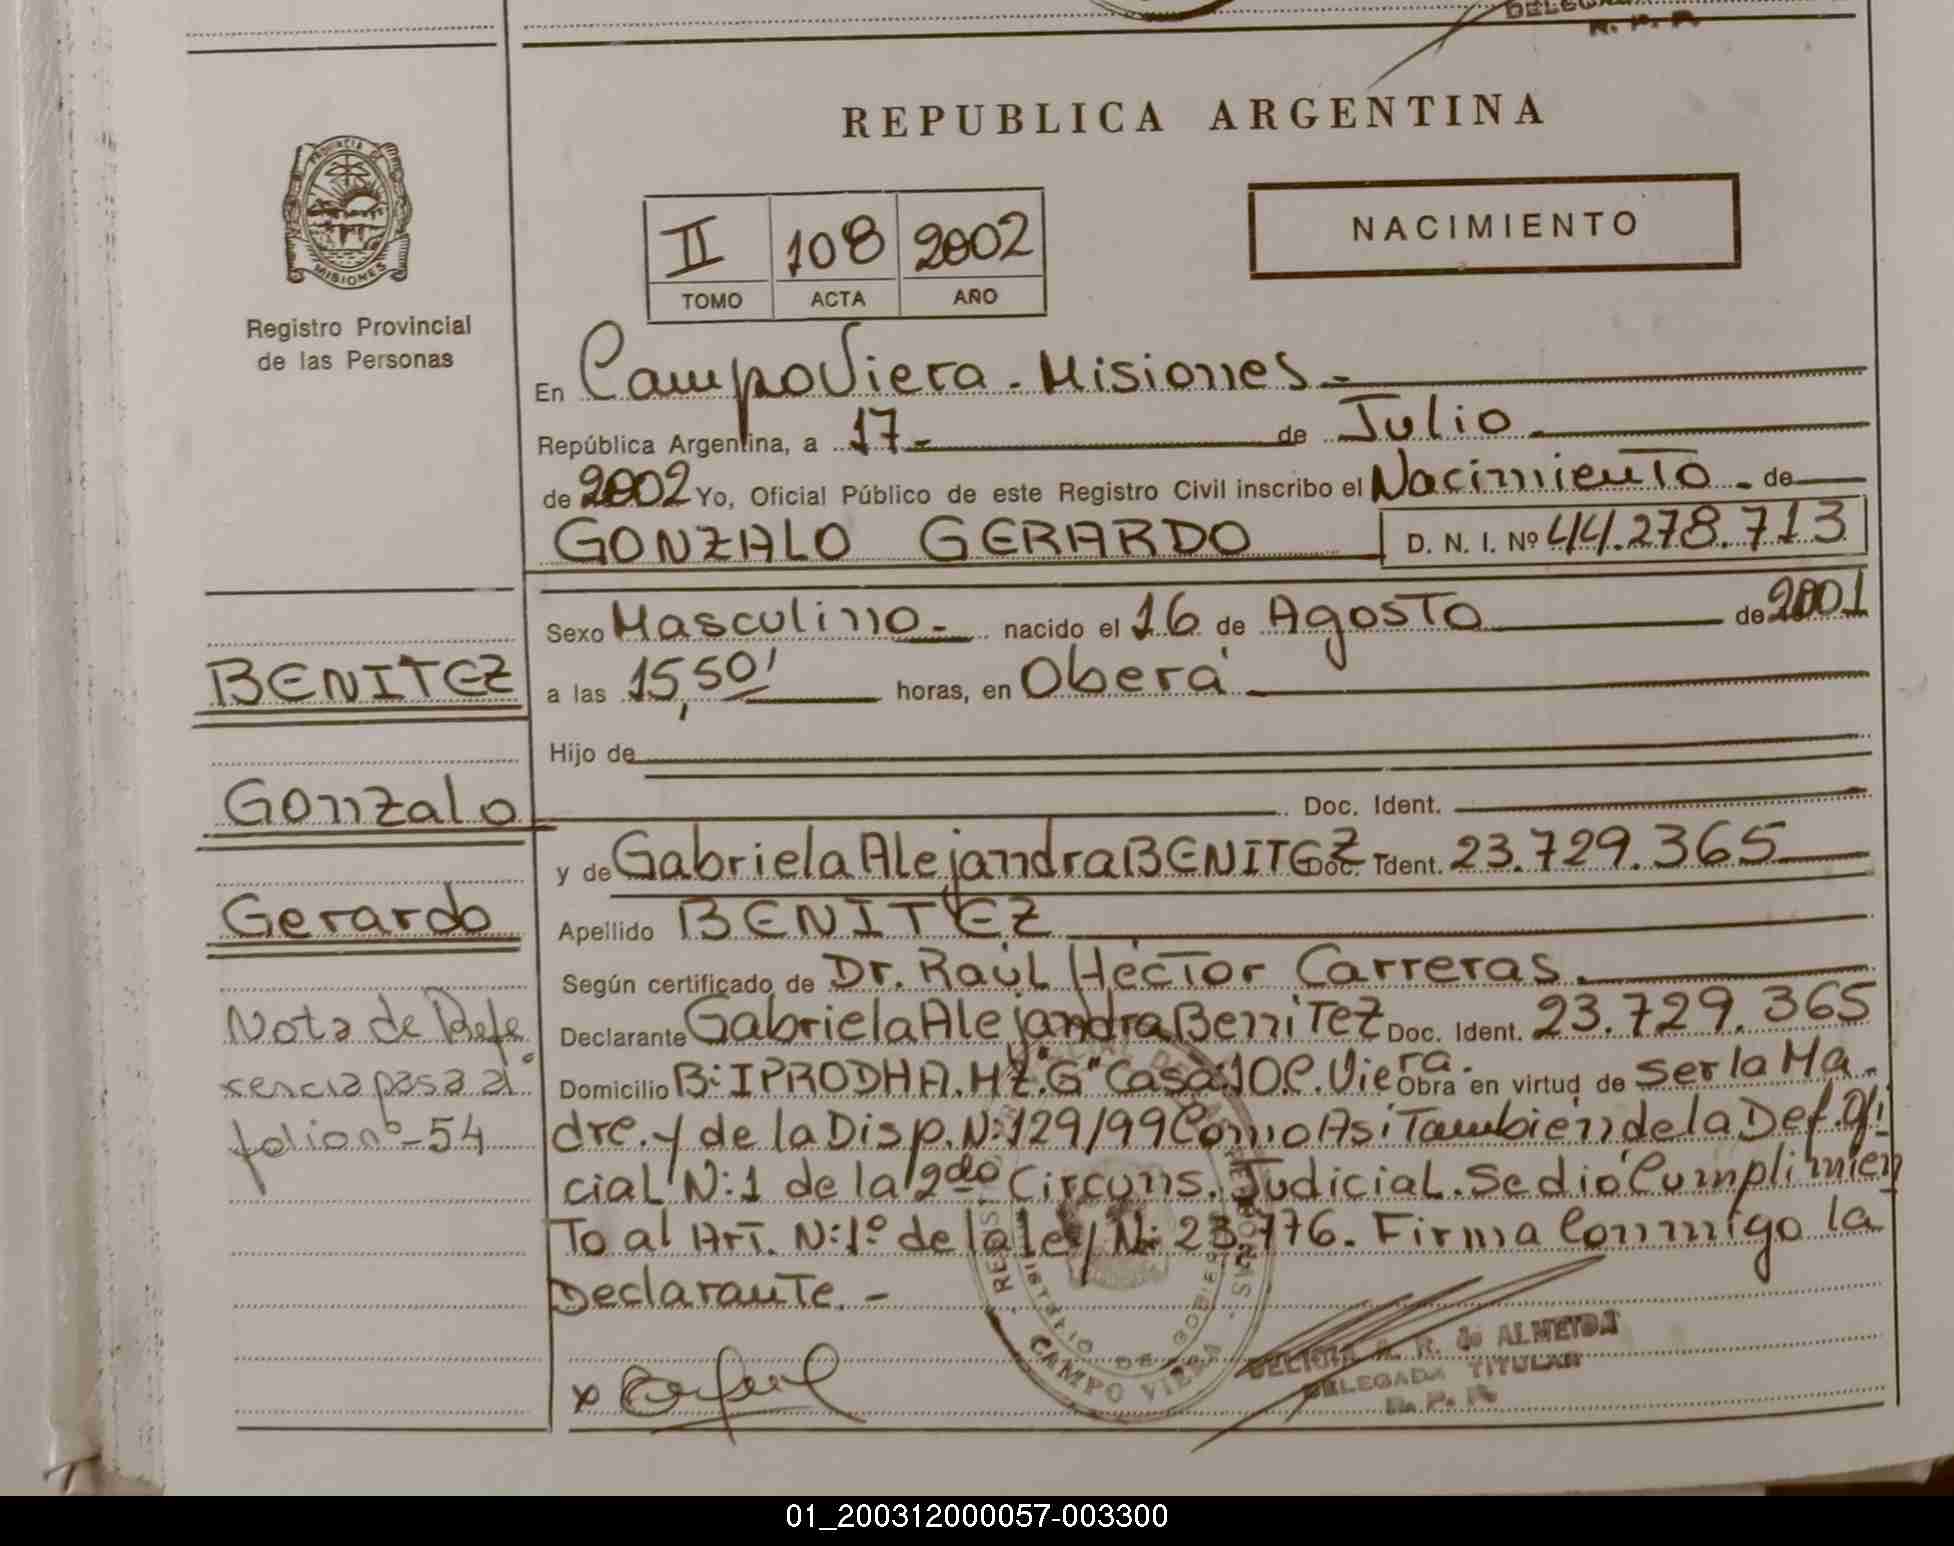 DELEGA
R. P. P.
REPUBLICA ARGENTINA
PROVINCIA DE
MISIONES
Registro Provincial
de las Personas
II 108 2002
TOMO ACTA AÑO
NACIMIENTO
En Campo Viera - Misiones -
República Argentina, a 17 - de Julio -
de 2002 Yo, Oficial Público de este Registro Civil inscribo el Nacimiento - de
GONZALO GERARDO D. N. I. Nº 44.278.713
Sexo Masculino - nacido el 16 de Agosto de 2001
a las 15,50' horas, en Oberá
Hijo de
Doc. Ident.
y de Gabriela Alejandra BENITEZ Doc. Ident. 23.729.365
Apellido BENITEZ
Según certificado de Dr. Raúl Héctor Carreras.
Declarante Gabriela Alejandra Benitez Doc. Ident. 23.729.365
Domicilio B: IPRODHA. Mz. "G" Casa: 10 C. Viera. Obra en virtud de ser la Ma
dre. y de la Disp. N: 129/99 Como Asi Tambien de la Def. Ofi
cial N: 1 de la 2do Circuns. Judicial. Se dió Cumplimien
To al Art. N: 1º de la ley N: 23.776. Firma Conmigo la
Declarante. -
BENITEZ
Gonzalo
Gerardo
Nota de Refe
rencia pasa al
folio nº - 54
x
CAMPO VIERA
A. R. de ALMEIDA
DELEGADA TITULAR
R. P. P.
01_200312000057-003300